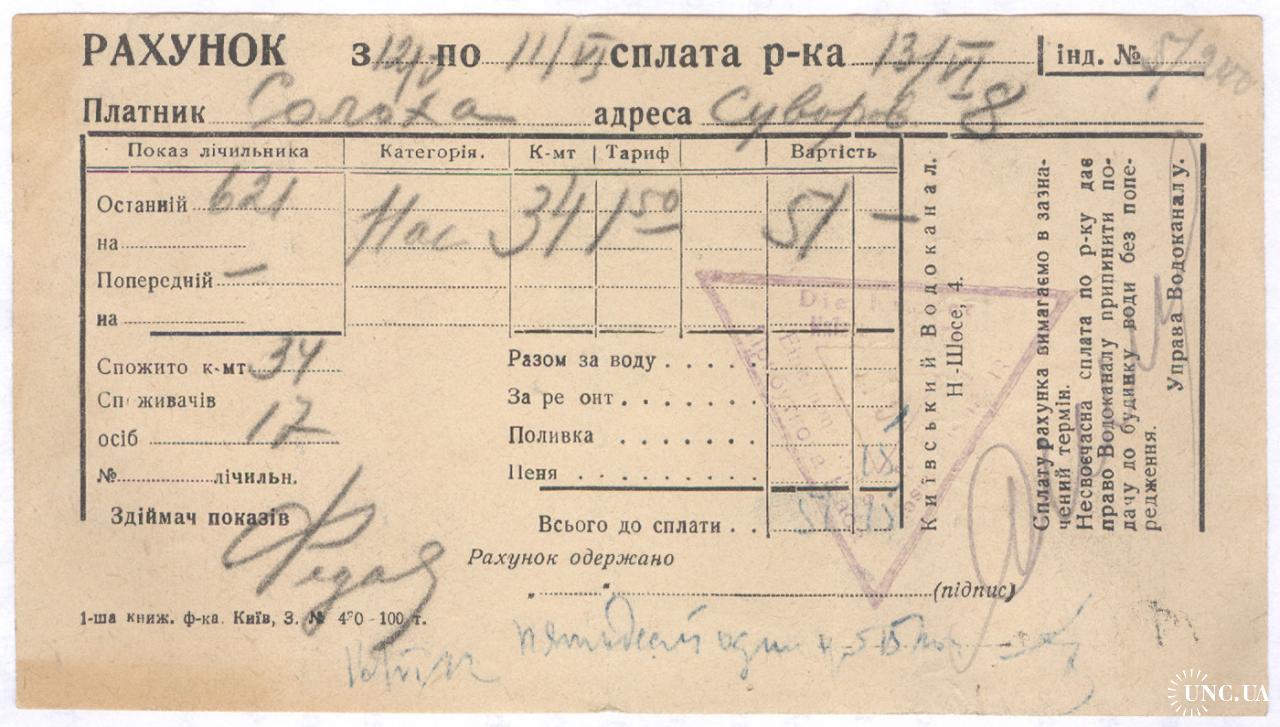 РАХУНОК з 12/V по 11/VI сплата р-ка 13/VI інд. №
Платник Солоха адреса Суворов 8
Показ лічильника Категорія. К-мт Тариф Вартість
Останній 621 Нас 34 1 50 51 —
на
Попередній —
на
Спожито к-мт 34
Сп живачів
осіб 17
№ лічильн.
Здіймач показів
Разом за воду
За ре онт
Поливка
Пеня
Всього до сплати
Рахунок одержано
(підпис)
1-ша книж. ф-ка. Київ, З. № 420-100 т.
Київський Водоканал.
Н-Шосе, 4.
Сплату рахунка вимагаємо в зазна-
чений термін.
Несвоєчасна сплата по р-ку дає
право Водоканалу припинити по-
дачу до будинку води без попе-
редження.
Управа Водоканалу.
UNC.UA